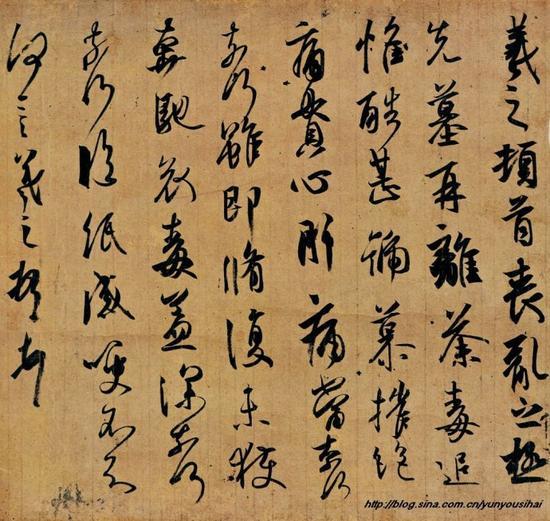 羲之頓首喪亂之極
先墓再離荼毒追
惟酷甚號慕摧絕
痛貫心肝痛當柰何
柰何雖即脩復未獲
奔馳哀毒益深柰何
柰何臨紙感哽不知
何言羲之頓首頓首
http://blog.sina.com.cn/yunyousihai